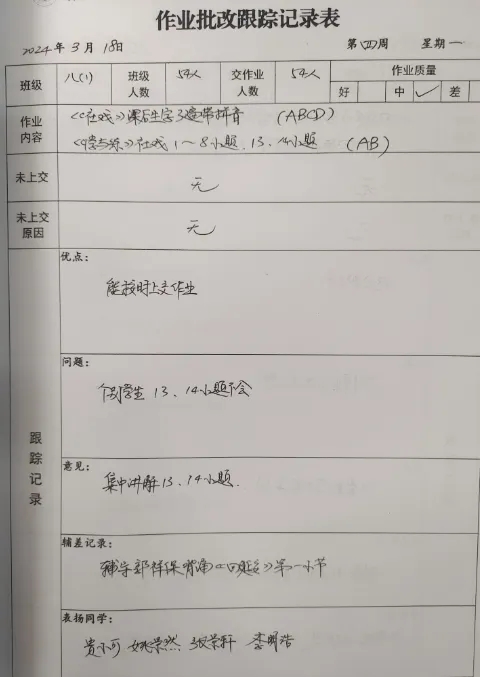 作业批改跟踪记录表
2024年3月18日 第四周 星期一
班级 八(1) 班级人数 54人 交作业人数 54人 作业质量 好 中 ✓ 差
作业内容 《社戏》课后生字3遍带拼音 (ABCD)
《学与练》社戏1～8小题、13、14小题 (AB)
未上交 无
未上交原因 无
跟踪记录
优点：
能按时上交作业
问题：
个别学生13、14小题不会
意见：
集中讲解13、14小题.
辅差记录：
辅导郭祥保背诵《回延安》第一小节
表扬同学：
贵小可 姚荣然 张荣轩 李明浩